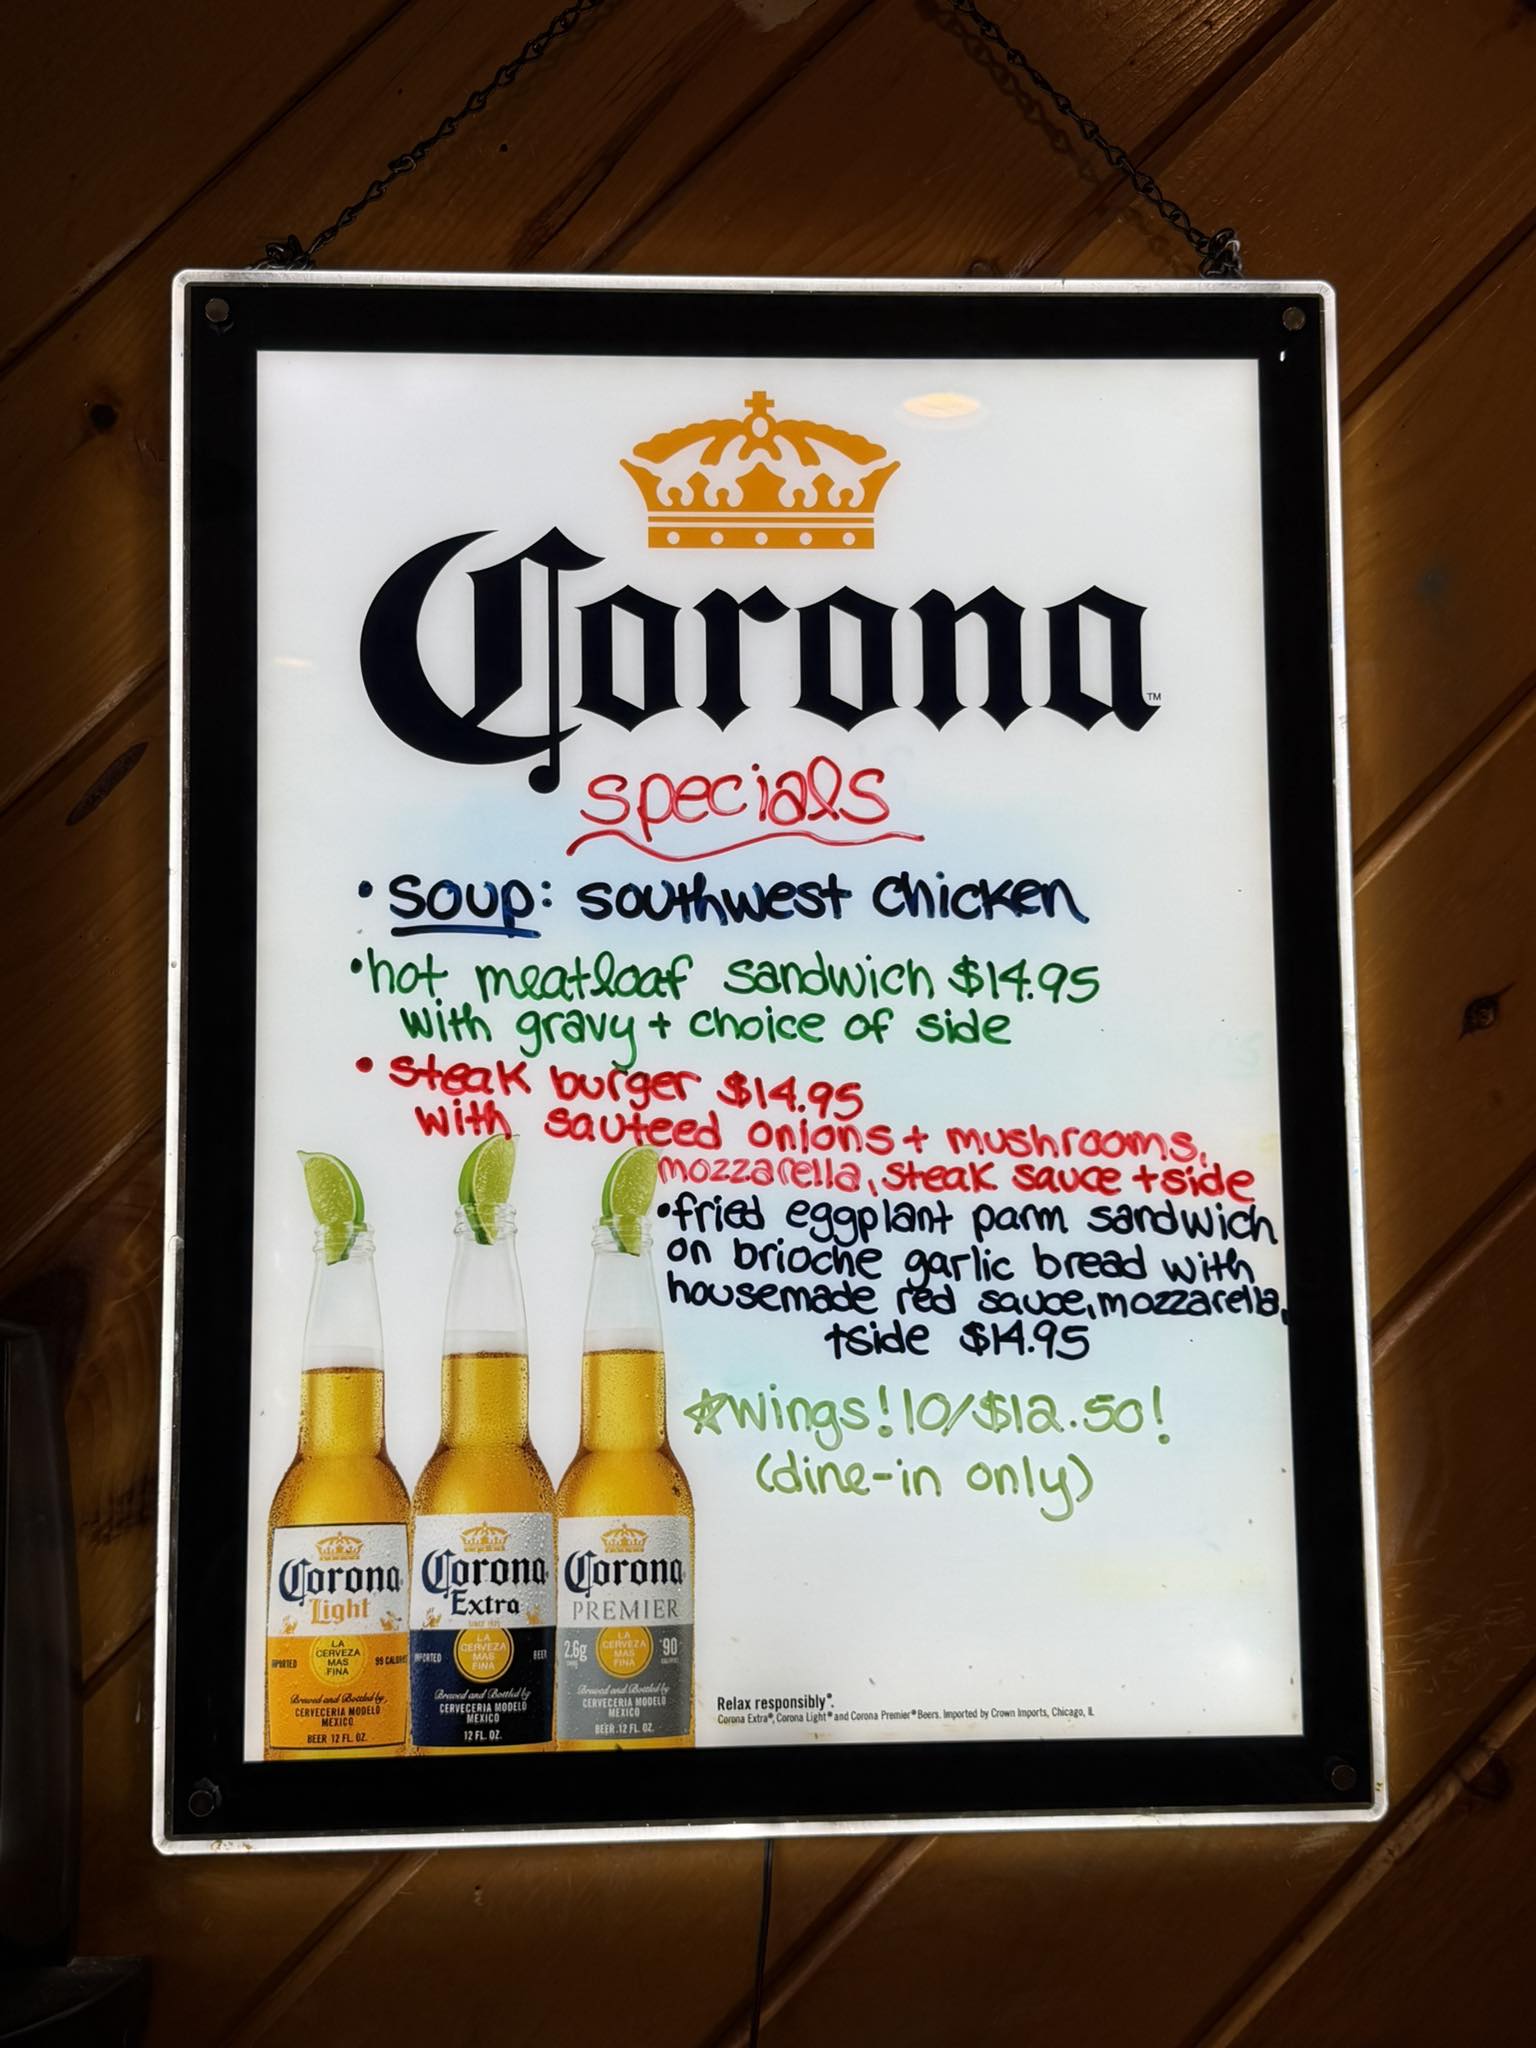 Corona™
specials
• soup: southwest chicken
• hot meatloaf sandwich $14.95
with gravy + choice of side
• steak burger $14.95
with sauteed onions + mushrooms,
mozzarella, steak sauce + side
• fried eggplant parm sandwich
on brioche garlic bread with
housemade red sauce, mozzarella,
+side $14.95
☆wings! 10/$12.50!
(dine-in only)
Corona
Light
LA
CERVEZA
MAS
FINA
IMPORTED
99 CALORIES
Brewed and Bottled by
CERVECERIA MODELO
MEXICO
BEER 12 FL. OZ.
Corona
Extra
SINCE 1925
LA
CERVEZA
MAS
FINA
IMPORTED
BEER
Brewed and Bottled by
CERVECERIA MODELO
MEXICO
12 FL. OZ.
Corona
PREMIER
2.6g
CARBS
LA
CERVEZA
MAS
FINA
90
CALORIES
Brewed and Bottled by
CERVECERIA MODELO
MEXICO
BEER.12 FL. OZ.
Relax responsibly®.
Corona Extra®, Corona Light® and Corona Premier® Beers. Imported by Crown Imports, Chicago, IL